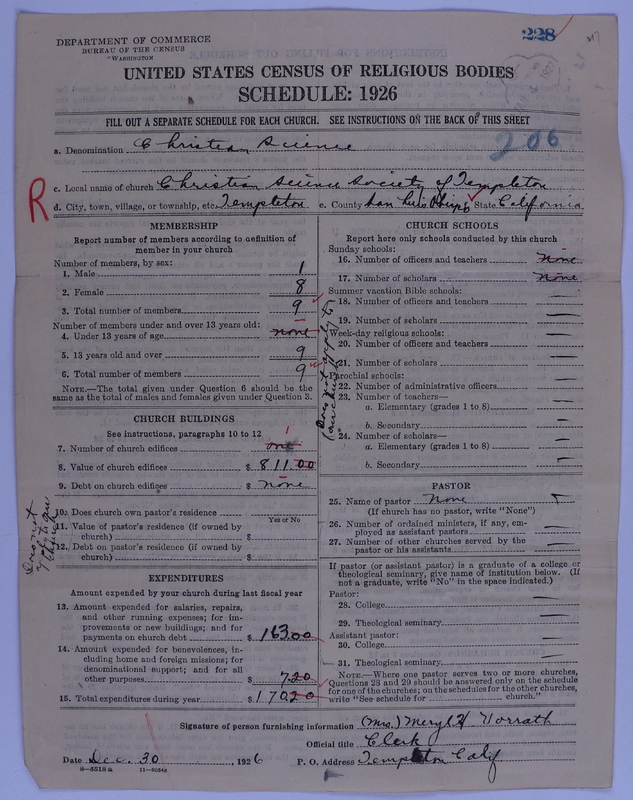 DEPARTMENT OF COMMERCE
BUREAU OF THE CENSUS
WASHINGTON
228
UNITED STATES CENSUS OF RELIGIOUS BODIES
SCHEDULE: 1926
FILL OUT A SEPARATE SCHEDULE FOR EACH CHURCH. SEE INSTRUCTIONS ON THE BACK OF THIS SHEET
206
a. Denomination Christian Science
R
c. Local name of church Christian Science Society of Templeton
d. City, town, village, or township, etc. Templeton e. County San Luis Obispo State California
MEMBERSHIP
Report number of members according to definition of
member in your church
Number of members, by sex:
1. Male 1
2. Female 8
3. Total number of members 9
Number of members under and over 13 years old:
4. Under 13 years of age none
5. 13 years old and over 9
6. Total number of members 9
NOTE.—The total given under Question 6 should be the
same as the total of males and females given under Question 3.
CHURCH BUILDINGS
See instructions, paragraphs 10 to 12
7. Number of church edifices one 1
8. Value of church edifices $ 811.00
9. Debt on church edifices $ none
10. Does church own pastor's residence
Yes or No
11. Value of pastor's residence (if owned by
church) $
12. Debt on pastor's residence (if owned by
church) $
Does not apply to our church
EXPENDITURES
Amount expended by your church during last fiscal year
13. Amount expended for salaries, repairs,
and other running expenses; for im-
provements or new buildings; and for
payments on church debt $ 163.00
14. Amount expended for benevolences, in-
cluding home and foreign missions; for
denominational support; and for all
other purposes $ 7.20
15. Total expenditures during year $ 170.20
CHURCH SCHOOLS
Report here only schools conducted by this church
Sunday schools:
16. Number of officers and teachers None
17. Number of scholars None
Summer vacation Bible schools:
18. Number of officers and teachers —
19. Number of scholars —
Week-day religious schools:
20. Number of officers and teachers —
21. Number of scholars —
Parochial schools:
22. Number of administrative officers —
23. Number of teachers—
a. Elementary (grades 1 to 8) —
b. Secondary —
24. Number of scholars—
a. Elementary (grades 1 to 8) —
b. Secondary —
Does not apply to our church
PASTOR
25. Name of pastor None
(If church has no pastor, write "None")
26. Number of ordained ministers, if any, em-
ployed as assistant pastors —
27. Number of other churches served by the
pastor or his assistants —
If pastor (or assistant pastor) is a graduate of a college or
theological seminary, give name of institution below. (If
not a graduate, write "No" in the space indicated.)
Pastor:
28. College —
29. Theological seminary —
Assistant pastor:
30. College —
31. Theological seminary —
NOTE.—Where one pastor serves two or more churches,
Questions 28 and 29 should be answered only on the schedule
for one of the churches; on the schedules for the other churches,
write "See schedule for church."
Signature of person furnishing information (Mrs.) Meryl H Vorrath
Official title Clerk
Date Dec. 30, 1926 P. O. Address Templeton Calif